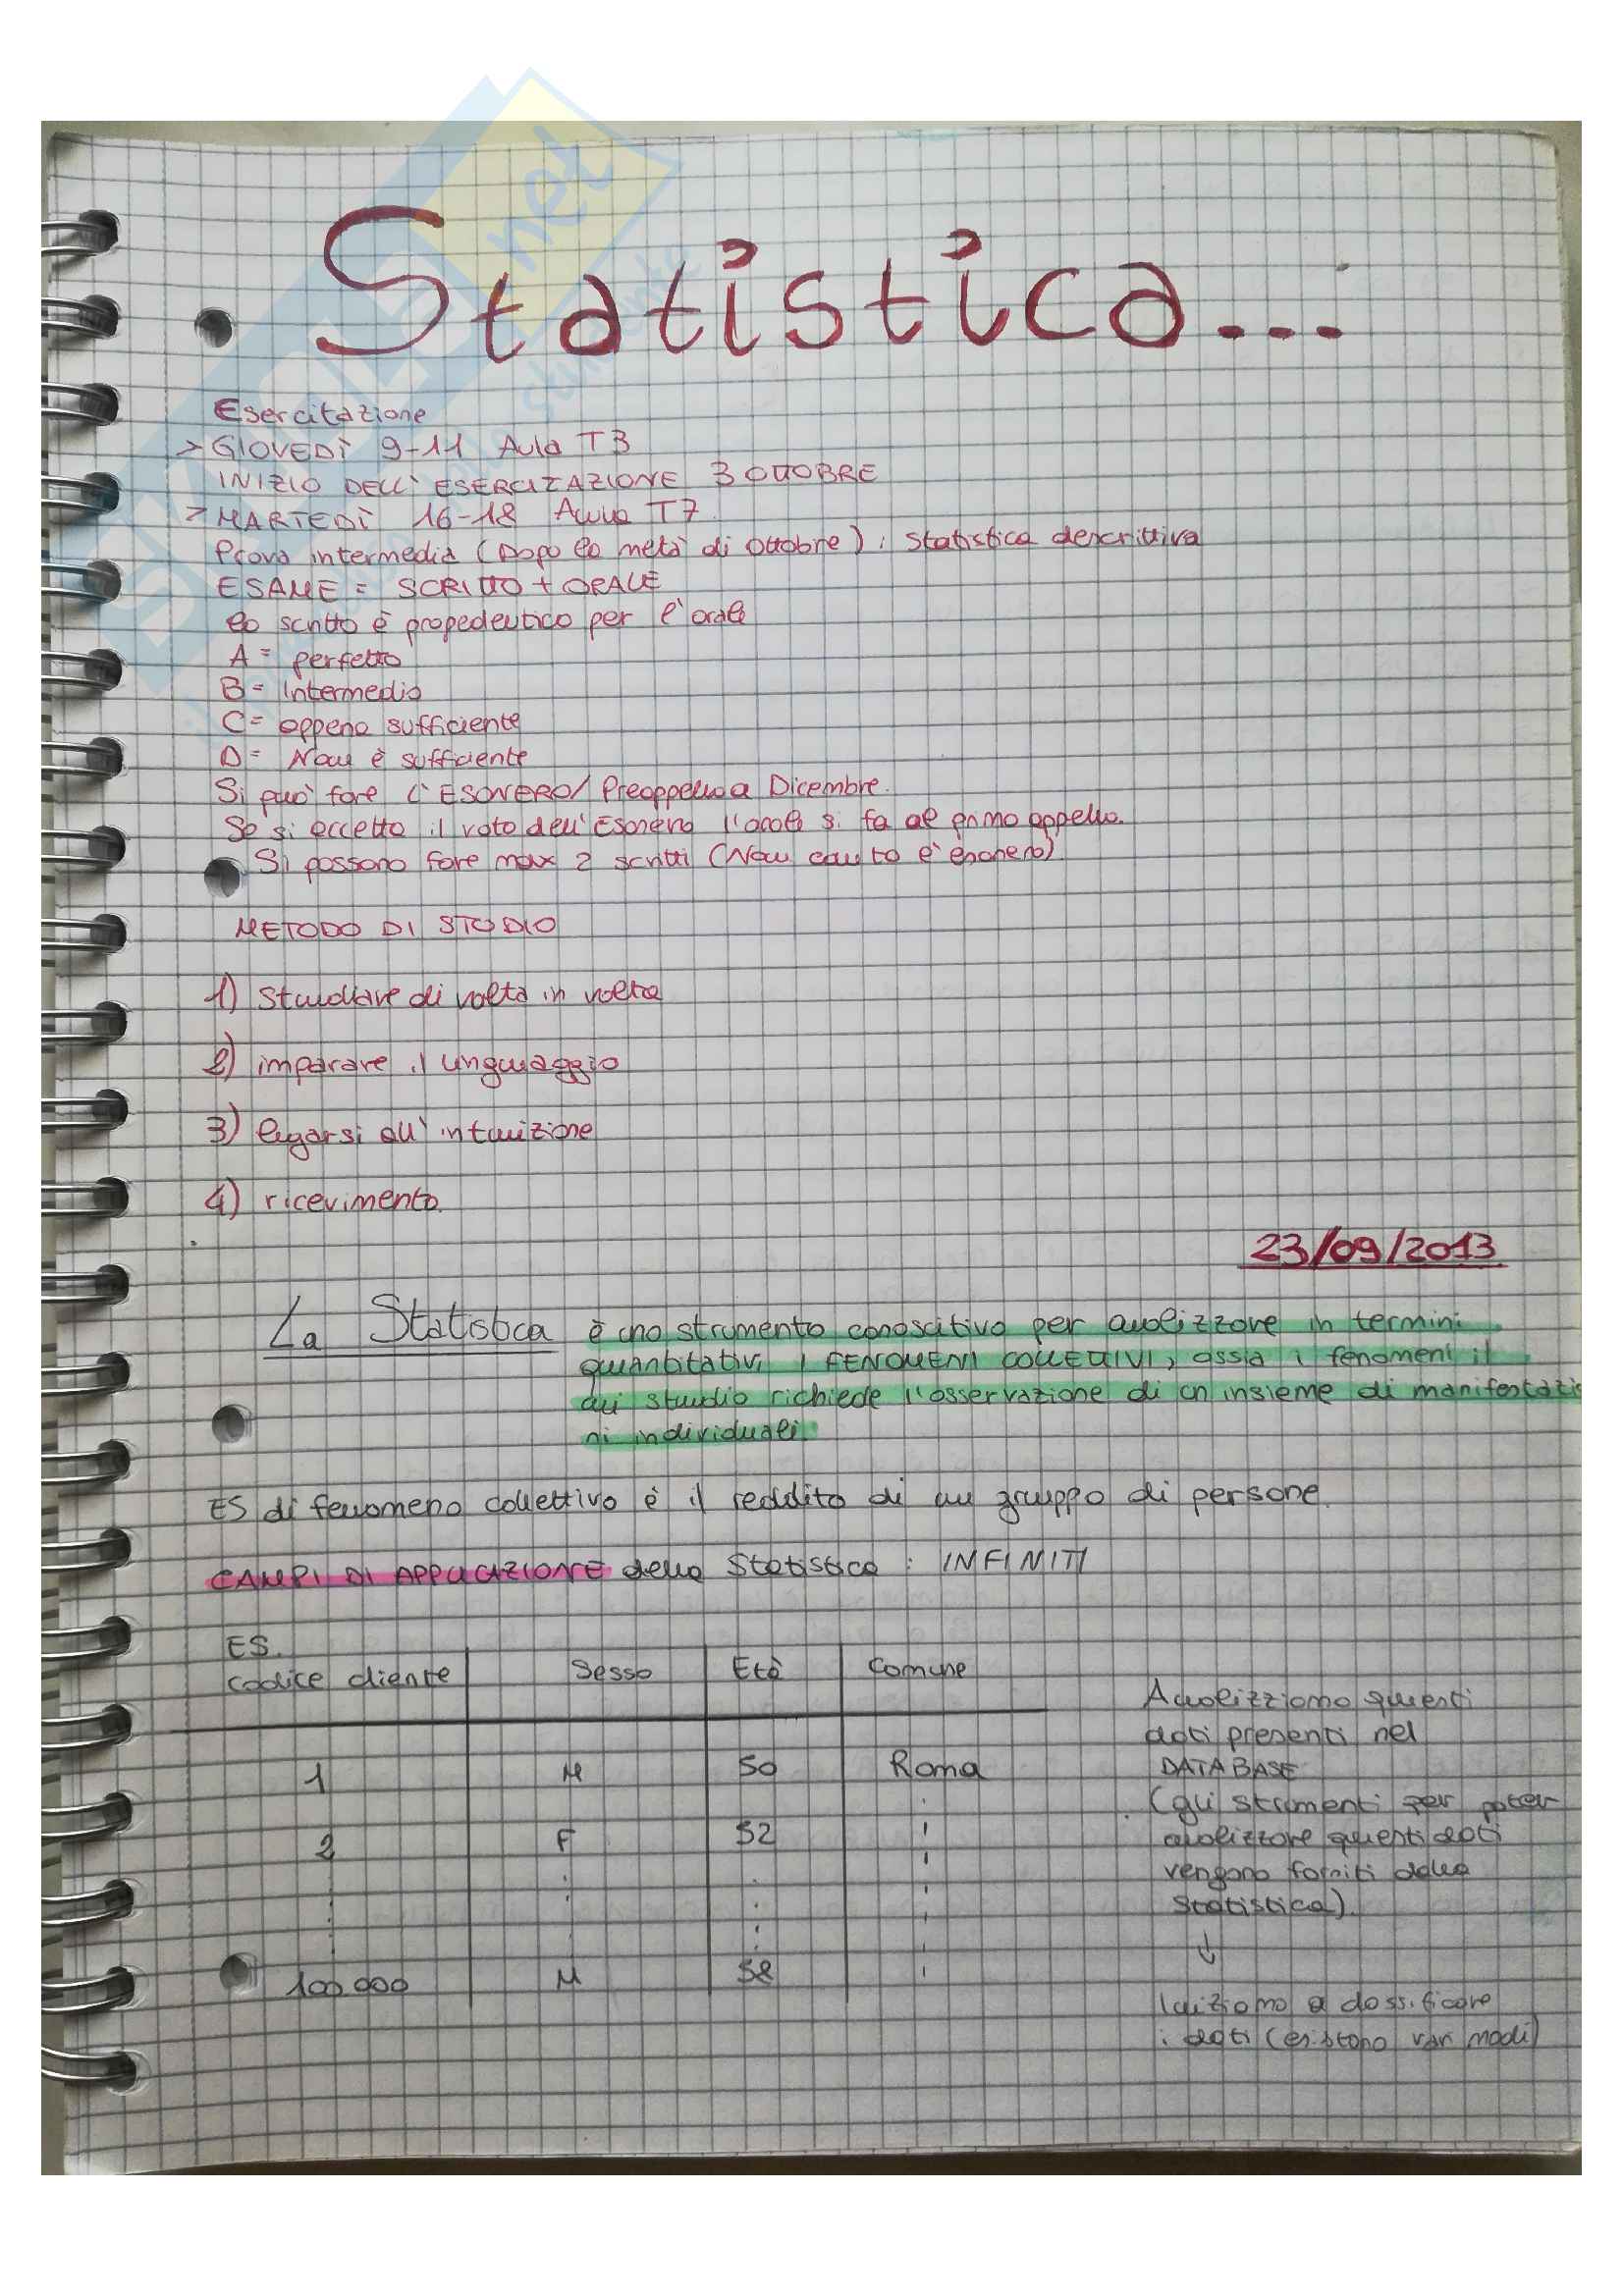 Statistica...
Esercitazione
> GIOVEDÌ 9-11 Aula T3
INIZIO DELL'ESERCITAZIONE 3 OTTOBRE
> MARTEDÌ 16-18 Aula T7
Prova intermedia (Dopo la metà di Ottobre): statistica descrittiva
ESAME = SCRITTO + ORALE
lo scritto è propedeutico per l'orale
A = perfetto
B = Intermedio
C = appena sufficiente
D = Non è sufficiente
Si può fare l'ESONERO/Preappello a Dicembre.
Se si accetta il voto dell'Esonero l'orale si fa al primo appello.
Si possono fare max 2 scritti (Non conta l'esonero)
METODO DI STUDIO
1) studiare di volta in volta
2) imparare il linguaggio
3) legarsi all'intuizione
4) ricevimento.
23/09/2013
La Statistica è uno strumento conoscitivo per analizzare in termini
quantitativi i FENOMENI COLLETTIVI, ossia i fenomeni il
cui studio richiede l'osservazione di un insieme di manifestazio
ni individuali.
ES di fenomeno collettivo è il reddito di un gruppo di persone.
CAMPI DI APPLICAZIONE della Statistica : INFINITI
ES.
Codice cliente Sesso Età Comune
1 M 50 Roma
2 F 52
100.000 M 58
Analizziamo questi
dati presenti nel
DATABASE
(gli strumenti per poter
analizzare questi dati
vengono forniti dalla
Statistica).
↓
Iniziamo a classificare
i dati (esistono vari modi)
net